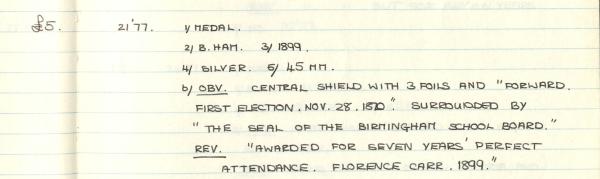 £5. 21'77. 1/ MEDAL.
2/ B.HAM. 3/ 1899.
4/ SILVER. 5/ 45 MM.
6/ OBV. CENTRAL SHIELD WITH 3 FOILS AND "FORWARD.
FIRST ELECTION. NOV. 28. 1870". SURROUNDED BY
"THE SEAL OF THE BIRMINGHAM SCHOOL BOARD."
REV. "AWARDED FOR SEVEN YEARS' PERFECT
ATTENDANCE. FLORENCE CARR. 1899."